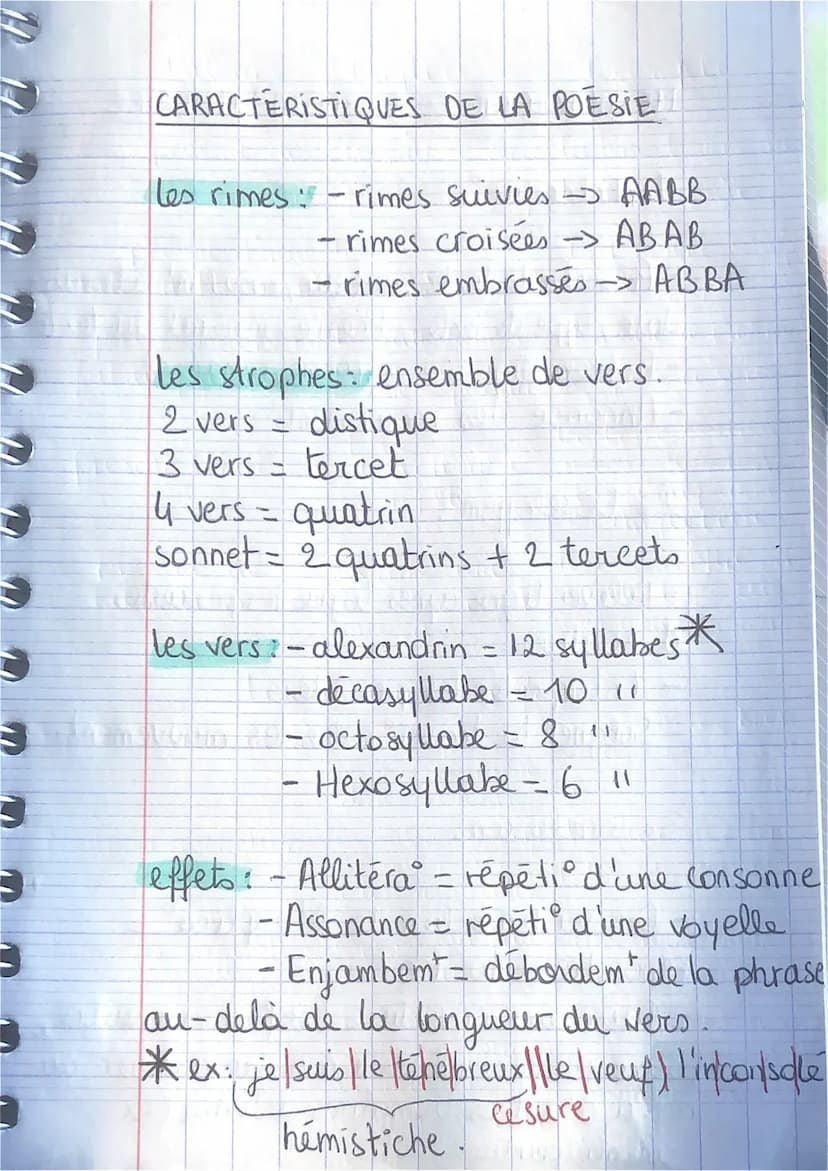 CARACTÉRISTIQUES DE LA POÉSIE
les rimes : - rimes suivies -> AABB
- rimes croisées -> ABAB
- rimes embrassés -> ABBA
les strophes : ensemble de vers.
2 vers = distique
3 vers = tercet
4 vers = quatrin
sonnet = 2 quatrins + 2 tercets
les vers : - alexandrin = 12 syllabes *
- décasyllabe = 10 "
- octosyllabe = 8 "
- Hexosyllabe = 6 "
effets : - Allitéra° = répéti° d'une consonne
- Assonance = répéti° d'une voyelle
- Enjambemt = débordemt de la phrase
au-delà de la longueur du vers.
* ex : je|suis|le|téné|breux||le|veuf| l'in|con|solé
césure
hémistiche.